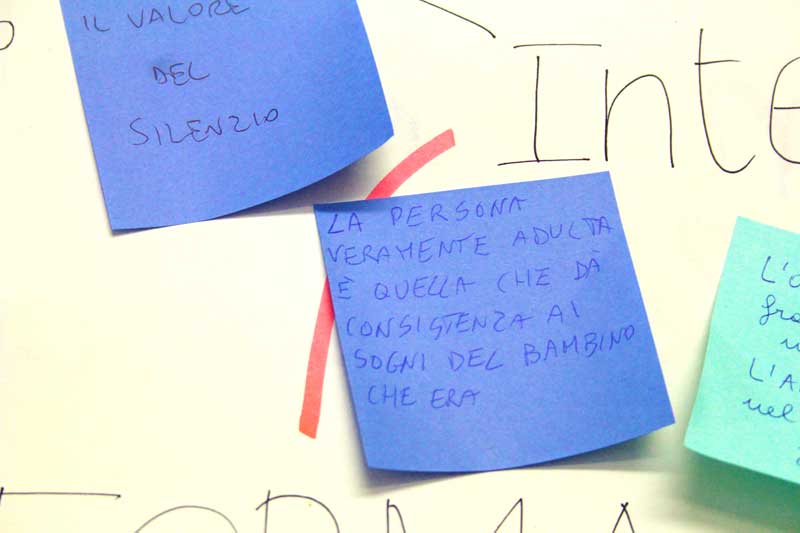 IL VALORE
DEL
SILENZIO
Inte
LA PERSONA
VERAMENTE ADULTA
È QUELLA CHE DÀ
CONSISTENZA AI
SOGNI DEL BAMBINO
CHE ERA
L'A
nel